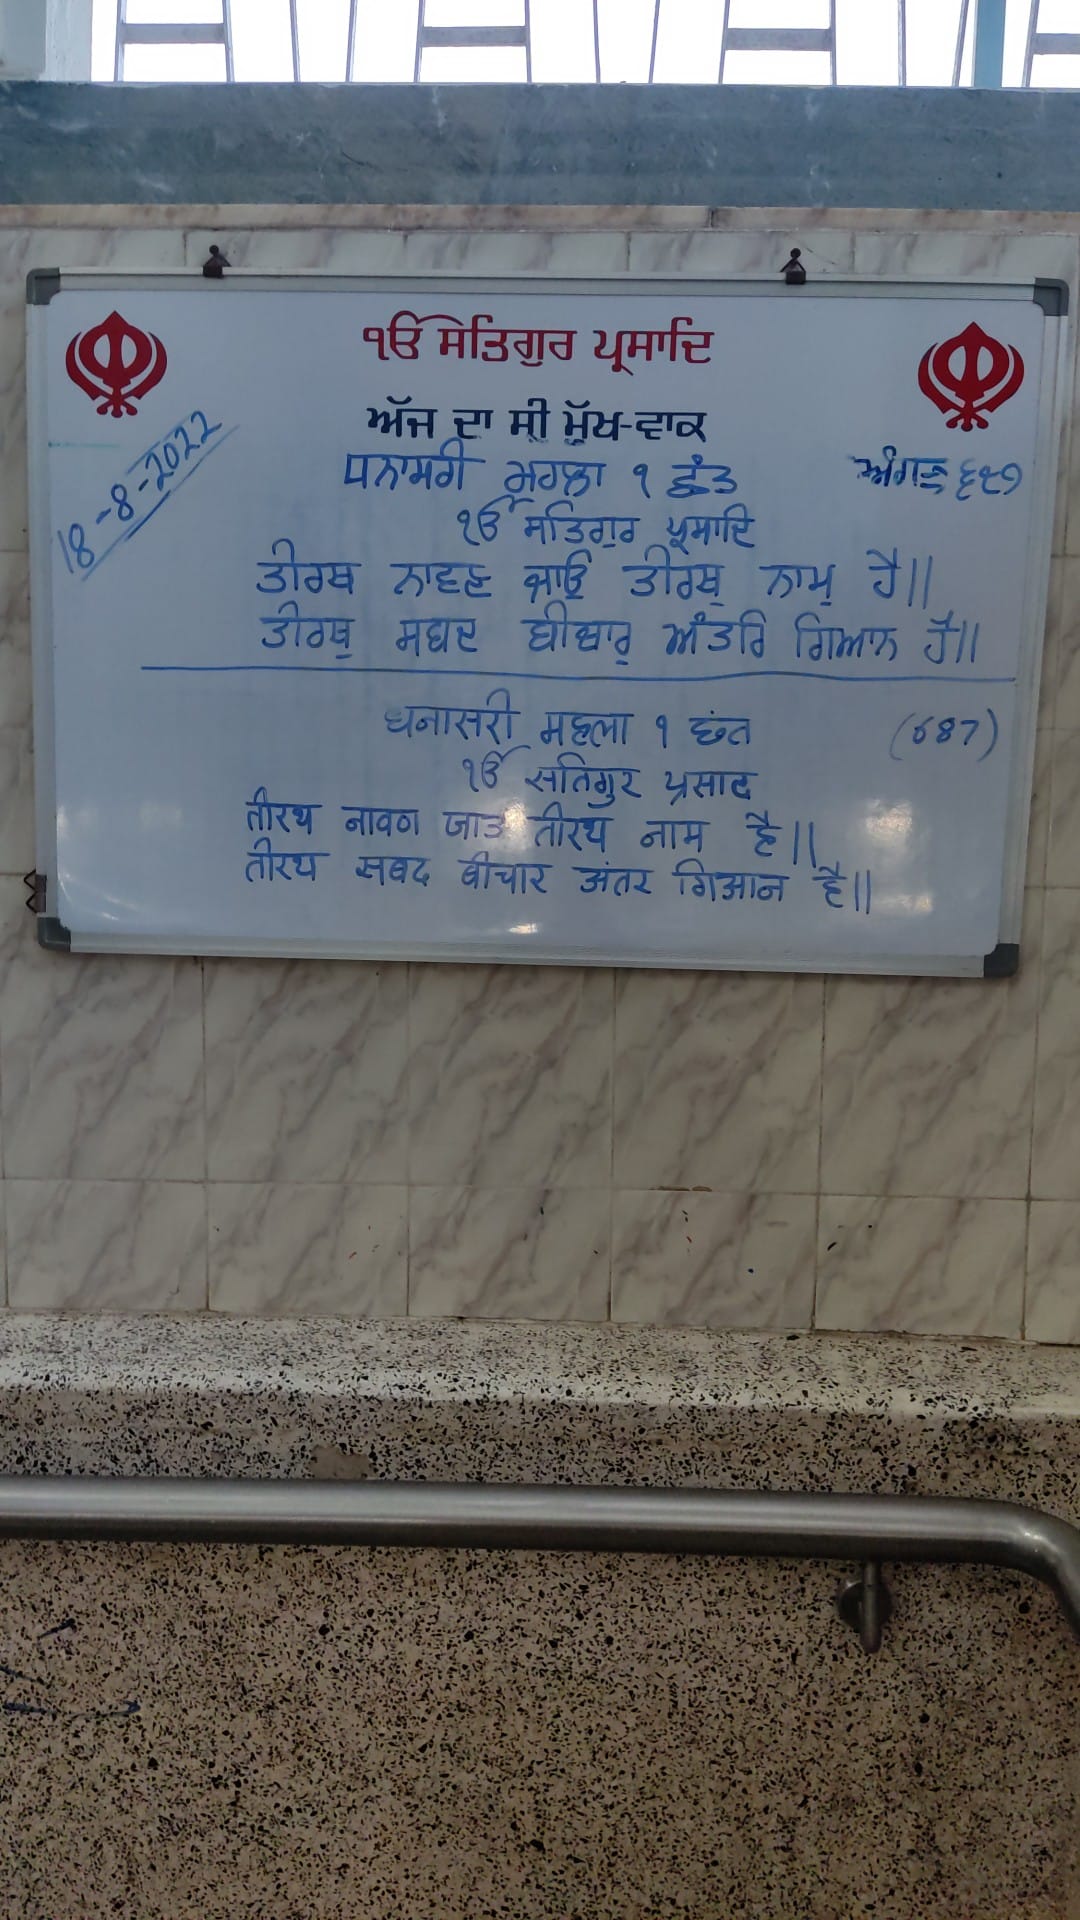 ੴ ਸਤਿਗੁਰ ਪ੍ਰਸਾਦਿ
ਅੱਜ ਦਾ ਸ੍ਰੀ ਮੁੱਖ-ਵਾਕ
18-8-2022
ਧਨਾਸਰੀ ਮਹਲਾ ੧ ਛੰਤ
ੴ ਸਤਿਗੁਰ ਪ੍ਰਸਾਦਿ
ਤੀਰਥ ਨਾਵਣ ਜਾਉ ਤੀਰਥੁ ਨਾਮੁ ਹੈ॥
ਤੀਰਥੁ ਸਬਦ ਬੀਚਾਰੁ ਅੰਤਰਿ ਗਿਆਨ ਹੈ॥
धनासरी महला १ छंत (687)
ੴ सतिगुर प्रसाद
तीरथ नावण जाउ तीरथ नाम है॥
तीरथ सबद बीचार अंतर गिआन है॥